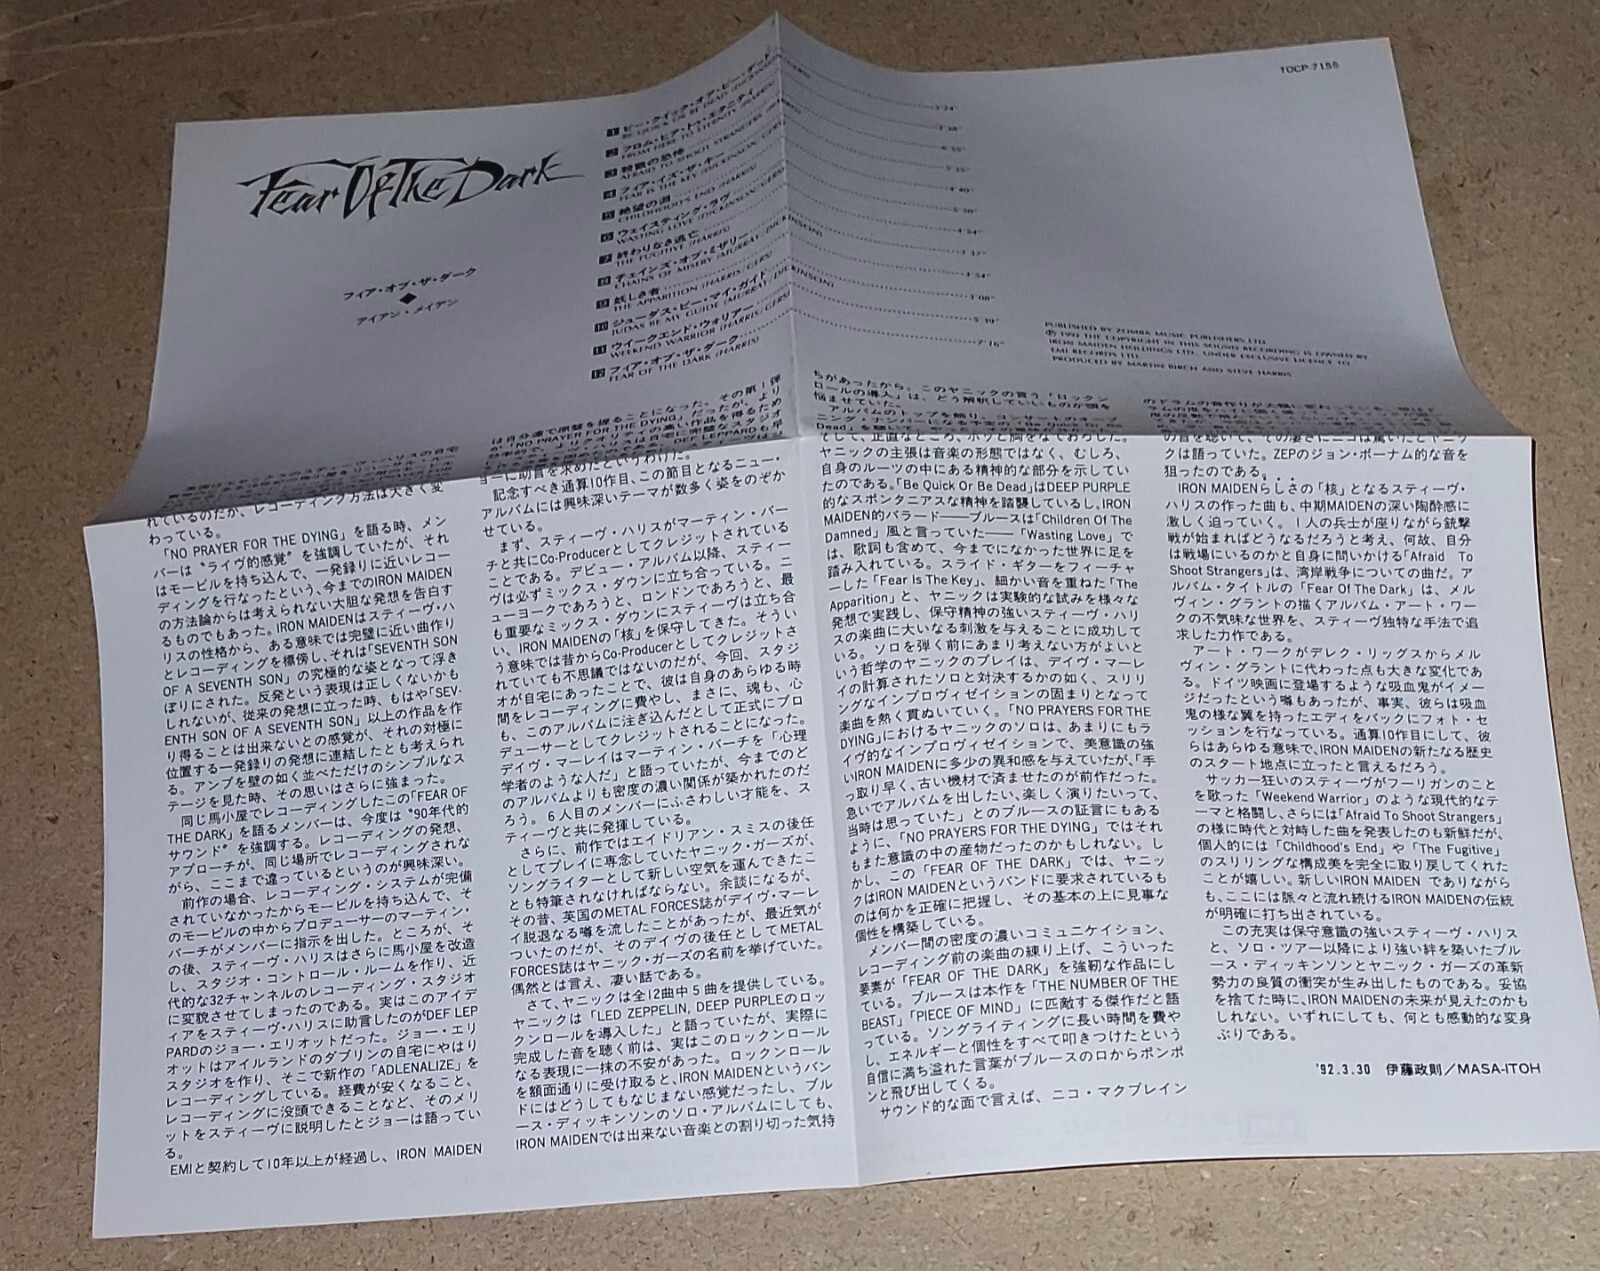 TOCP-7155
Fear Of The Dark
フィア・オブ・ザ・ダーク
◆
アイアン・メイデン
1 ビー・クイック・オア・ビー・デッド
BE QUICK OR BE DEAD
2 フロム・ヒア・トゥ・エタニティ
FROM HERE TO ETERNITY (HARRIS)
3 AFRAID TO SHOOT STRANGERS
4 フィア・イズ・ザ・キー
FEAR IS THE KEY (DICKINSON/GERS)
5 絶望の淵
CHILDHOOD'S END (HARRIS)
6 ウェイスティング・ラヴ
WASTING LOVE (DICKINSON/GERS)
7 終わりなき逃亡
THE FUGITIVE (HARRIS)
8 チェインズ・オブ・ミザリー
CHAINS OF MISERY (MURRAY/DICKINSON)
9 妖しき者
THE APPARITION (HARRIS/GERS)
10 ジューダス・ビー・マイ・ガイド
JUDAS BE MY GUIDE (MURRAY/DICKINSON)
11 ウイークエンド・ウォリアー
WEEKEND WARRIOR (HARRIS/GERS)
12 フィア・オブ・ザ・ダーク
FEAR OF THE DARK (HARRIS)
3'08"
5'39"
7'16"
PUBLISHED BY ZOMBA MUSIC PUBLISHERS LTD.
Ⓟ 1992 THE COPYRIGHT IN THIS SOUND RECORDING IS OWNED BY
IRON MAIDEN HOLDINGS LTD., UNDER EXCLUSIVE LICENCE TO
EMI RECORDS LTD.
PRODUCED BY MARTIN BIRCH AND STEVE HARRIS
れているのだが、レコーディング方法は大きく変
わっている。
「NO PRAYER FOR THE DYING」を語る時、メン
バーは〝ライヴ的感覚〟を強調していたが、それ
はモービルを持ち込んで、一発録りに近いレコー
ディングを行なったという、今までのIRON MAIDEN
の方法論からは考えられない大胆な発想を告白す
るものでもあった。IRON MAIDENはスティーヴ・ハ
リスの性格から、ある意味では完璧に近い曲作り
とレコーディングを標傍し、それは「SEVENTH SON
OF A SEVENTH SON」の究極的な姿となって浮き
ぼりにされた。反発という表現は正しくないかも
しれないが、従来の発想に立った時、もはや「SEV-
ENTH SON OF A SEVENTH SON」以上の作品を作
り得ることは出来ないとの感覚が、それの対極に
位置する一発録りの発想に連結したとも考えられ
る。アンプを壁の如く並べただけのシンプルなス
テージを見た時、その思いはさらに強まった。
同じ馬小屋でレコーディングしたこの「FEAR OF
THE DARK」を語るメンバーは、今度は〝90年代的
サウンド〟を強調する。レコーディングの発想、
アプローチが、同じ場所でレコーディングされな
がら、ここまで違っているというのが興味深い。
前作の場合、レコーディング・システムが完備
されていなかったからモービルを持ち込んで、そ
のモービルの中からプロデューサーのマーティン・
バーチがメンバーに指示を出した。ところが、そ
の後、スティーヴ・ハリスはさらに馬小屋を改造
し、スタジオ・コントロール・ルームを作り、近
代的な32チャンネルのレコーディング・スタジオ
に変貌させてしまったのである。実はこのアイデ
ィアをスティーヴ・ハリスに助言したのがDEF LEP
PARDのジョー・エリオットだった。ジョー・エリ
オットはアイルランドのダブリンの自宅にやはり
スタジオを作り、そこで新作の「ADLENALIZE」を
レコーディングしている。経費が安くなること、
レコーディングに没頭できることなど、そのメリ
ットをスティーヴに説明したとジョーは語ってい
る。
EMIと契約して10年以上が経過し、IRON MAIDEN
は自分達で原盤を握ることになった。その第1弾
が「NO PRAYER FOR THE DYING」だったが、より
ョーに助言を求めたというわけだ。
記念すべき通算10作目、この節目となるニュー・
アルバムには興味深いテーマが数多く姿をのぞか
せている。
まず、スティーヴ・ハリスがマーティン・バー
チと共にCo-Producerとしてクレジットされている
ことである。デビュー・アルバム以降、スティー
ヴは必ずミックス・ダウンに立ち合っている。ニ
ューヨークであろうと、ロンドンであろうと、最
も重要なミックス・ダウンにスティーヴは立ち合
い、IRON MAIDENの「核」を保守してきた。そうい
う意味では昔からCo-Producerとしてクレジットさ
れていても不思議ではないのだが、今回、スタジ
オが自宅にあったことで、彼は自身のあらゆる時
間をレコーディングに費やし、まさに、魂も、心
も、このアルバムに注ぎ込んだとして正式にプロ
デューサーとしてクレジットされることになった。
デイヴ・マーレイはマーティン・バーチを「心理
学者のような人だ」と語っていたが、今までのど
のアルバムよりも密度の濃い関係が築かれたのだ
ろう。6人目のメンバーにふさわしい才能を、ス
ティーヴと共に発揮している。
さらに、前作ではエイドリアン・スミスの後任
としてプレイに専念していたヤニック・ガーズが、
ソングライターとして新しい空気を運んできたこ
とも特筆されなければならない。余談になるが、
その昔、英国のMETAL FORCES誌がデイヴ・マーレ
イ脱退なる噂を流したことがあったが、最近気が
ついたのだが、そのデイヴの後任としてMETAL
FORCES誌はヤニック・ガーズの名前を挙げていた。
偶然とは言え、凄い話である。
さて、ヤニックは全12曲中5曲を提供している。
ヤニックは「LED ZEPPELIN, DEEP PURPLEのロッ
クンロールを導入した」と語っていたが、実際に
完成した音を聴く前は、実はこのロックンロール
なる表現に一抹の不安があった。ロックンロール
を額面通りに受け取ると、IRON MAIDENというバン
ドにはどうしてもなじまない感覚だったし、ブル
ース・ディッキンソンのソロ・アルバムにしても、
IRON MAIDENでは出来ない音楽との割り切った気持
ちがあったから、このヤニックの言う「ロックン
ロールの導入」は、どう解釈していいものか頭を
悩ませていた。
アルバムのトップを飾り、コンサートのオープ
そして、正直なところ、ホッと胸をなでおろした。
ヤニックの主張は音楽の形態ではなく、むしろ、
自身のルーツの中にある精神的な部分を示してい
たのである。「Be Quick Or Be Dead」はDEEP PURPLE
的なスポンタニアスな精神を踏襲しているし、IRON
MAIDEN的バラード――ブルースは「Children Of The
Damned」風と言っていた――「Wasting Love」で
は、歌詞も含めて、今までになかった世界に足を
踏み入れている。スライド・ギターをフィーチャ
ーした「Fear Is The Key」、細かい音を重ねた「The
Apparition」と、ヤニックは実験的な試みを様々な
発想で実践し、保守精神の強いスティーヴ・ハリ
スの楽曲に大いなる刺激を与えることに成功して
いる。ソロを弾く前にあまり考えない方がよいと
いう哲学のヤニックのプレイは、デイヴ・マーレ
イの計算されたソロと対決するかの如く、スリリ
ングなインプロヴィゼイションの固まりとなって
楽曲を熱く貫ぬいていく。「NO PRAYERS FOR THE
DYING」におけるヤニックのソロは、あまりにもラ
イヴ的なインプロヴィゼイションで、美意識の強
いIRON MAIDENに多少の異和感を与えていたが、「手
っ取り早く、古い機材で済ませたのが前作だった。
急いでアルバムを出したい、楽しく演りたいって、
当時は思っていた」とのブルースの証言にもある
ように、「NO PRAYERS FOR THE DYING」ではそれ
もまた意識の中の産物だったのかもしれない。し
かし、この「FEAR OF THE DARK」では、ヤニッ
クはIRON MAIDENというバンドに要求されているも
のは何かを正確に把握し、その基本の上に見事な
個性を構築している。
メンバー間の密度の濃いコミュニケイション、
レコーディング前の楽曲の練り上げ、こういった
要素が「FEAR OF THE DARK」を強靭な作品にし
ている。ブルースは本作を「THE NUMBER OF THE
BEAST」「PIECE OF MIND」に匹敵する傑作だと語
っている。ソングライティングに長い時間を費や
し、エネルギーと個性をすべて叩きつけたという
自信に満ち溢れた言葉がブルースの口からポンポ
ンと飛び出してくる。
サウンド的な面で言えば、ニコ・マクブレイン
の音を聴いて、その凄さにニコは驚いたとヤニッ
クは語っていた。ZEPのジョン・ボーナム的な音を
狙ったのである。
IRON MAIDENらしさの「核」となるスティーヴ・
ハリスの作った曲も、中期MAIDENの深い陶酔感に
激しく迫っていく。1人の兵士が座りながら銃撃
戦が始まればどうなるだろうと考え、何故、自分
は戦場にいるのかと自身に問いかける「Afraid To
Shoot Strangers」は、湾岸戦争についての曲だ。ア
ルバム・タイトルの「Fear Of The Dark」は、メル
ヴィン・グラントの描くアルバム・アート・ワー
クの不気味な世界を、スティーヴ独特な手法で追
求した力作である。
アート・ワークがデレク・リッグスからメル
ヴィン・グラントに代わった点も大きな変化であ
る。ドイツ映画に登場するような吸血鬼がイメー
ジだったという噂もあったが、事実、彼らは吸血
鬼の様な翼を持ったエディをバックにフォト・セ
ッションを行なっている。通算10作目にして、彼
らはあらゆる意味で、IRON MAIDENの新たなる歴史
のスタート地点に立ったと言えるだろう。
サッカー狂いのスティーヴがフーリガンのこと
を歌った「Weekend Warrior」のような現代的なテ
ーマと格闘し、さらには「Afraid To Shoot Strangers」
の様に時代と対峙した曲を発表したのも新鮮だが、
個人的には「Childhood's End」や「The Fugitive」
のスリリングな構成美を完全に取り戻してくれた
ことが嬉しい。新しいIRON MAIDEN でありながら
も、ここには脈々と流れ続けるIRON MAIDENの伝統
が明確に打ち出されている。
この充実は保守意識の強いスティーヴ・ハリス
と、ソロ・ツアー以降により強い絆を築いたブル
ース・ディッキンソンとヤニック・ガーズの革新
勢力の良質の衝突が生み出したものである。妥協
を捨てた時に、IRON MAIDENの未来が見えたのかも
しれない。いずれにしても、何とも感動的な変身
ぶりである。
'92.3.30 伊藤政則／MASA-ITOH